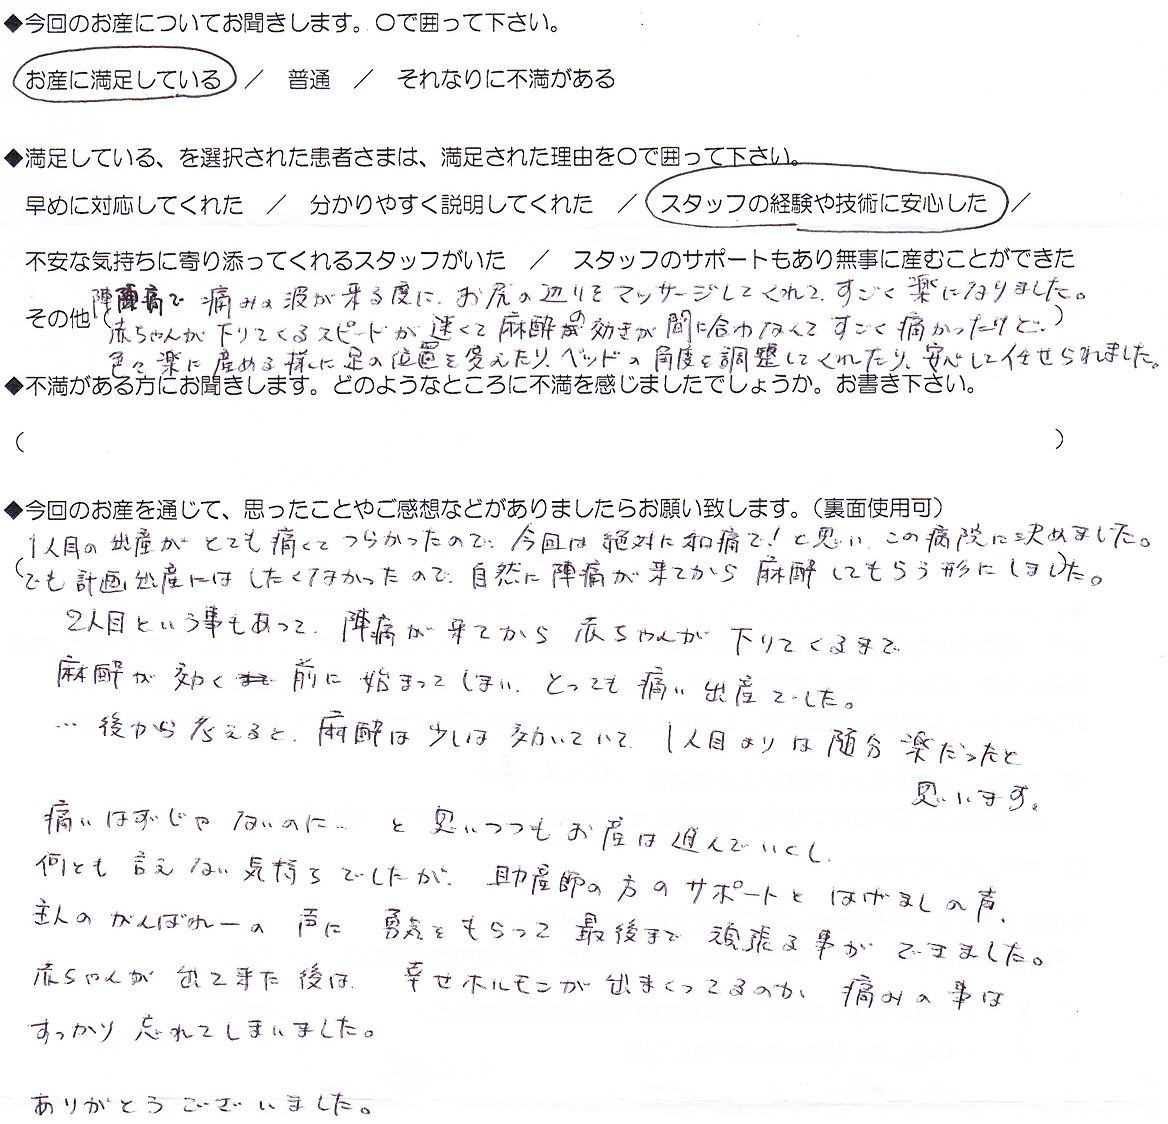 ◆今回のお産についてお聞きします。〇で囲って下さい。
お産に満足している ／ 普通 ／ それなりに不満がある
◆満足している、を選択された患者さまは、満足された理由を〇で囲って下さい。
早めに対応してくれた ／ 分かりやすく説明してくれた ／ スタッフの経験や技術に安心した ／
不安な気持ちに寄り添ってくれるスタッフがいた ／ スタッフのサポートもあり無事に産むことができた
陣痛で 痛みの波が来る度に、お尻の辺りをマッサージしてくれて、すごく楽になりました。
その他（赤ちゃんが下りてくるスピードが速くて麻酔の効きが間に合わなくてすごく痛かったけど、）
色々楽に産める様に足の位置を変えたり、ベッドの角度を調整してくれたり、安心して任せられました。
◆不満がある方にお聞きします。どのようなところに不満を感じましたでしょうか。お書き下さい。
（ ）
◆今回のお産を通じて、思ったことやご感想などがありましたらお願い致します。（裏面使用可）
1人目の出産がとても痛くてつらかったので、今回は絶対に和痛で！と思い、この病院に決めました。
（でも計画出産にはしたくなかったので、自然に陣痛が来てから麻酔してもらう形にしました。）
2人目という事もあって、陣痛が来てから赤ちゃんが下りてくるまで
麻酔が効く前に始まってしまい、とっても痛い出産でした。
…後から考えると、麻酔は少しは効いていて、1人目よりは随分楽だったと
思います。
痛いはずじゃないのに… と思いつつもお産は進んでいくし、
何とも言えない気持ちでしたが、助産師の方のサポートとはげましの声、
主人のがんばれーの声に勇気をもらって最後まで頑張る事ができました。
赤ちゃんが出て来た後は、幸せホルモンが出まくってるのか、痛みの事は
すっかり忘れてしまいました。
ありがとうございました。